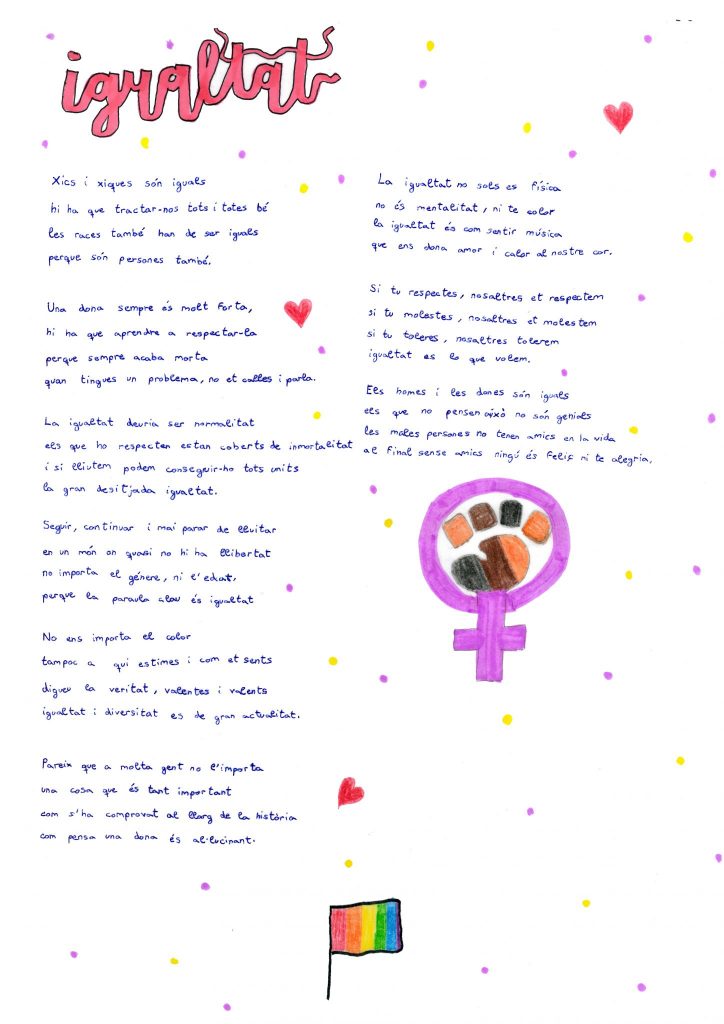 igualtat
Xics i xiques són iguals
hi ha que tractar-nos tots i totes bé
les races també han de ser iguals
perque són persones també.
Una dona sempre és molt forta,
hi ha que aprendre a respectar-la
perque sempre acaba morta
quan tingues un problema, no et calles i parla.
La igualtat deuria ser normalitat
els que ho respecten estan coberts de inmortalitat
i si lliutem podem conseguir-ho tots units
la gran desitjada igualtat.
Seguir, continuar i mai parar de lluitar
en un món on quasi no hi ha llibertat
no importa el génere, ni l'edat.
perque la paraula clau és igualtat
No ens importa el color
tampoc a qui estimes i com et sents
digueu la veritat, valentes i valents
igualtat i diversitat es de gran actualitat.
Pareix que a molta gent no l'importa
una cosa que és tant important
com s'ha comprovat al llarg de la història
com pensa una dona és al·lucinant.
La igualtat no sols es física
no és mentalitat, ni te color
la igualtat és com sentir música
que ens dona amor i calor al nostre cor.
Si tu respectes, nosaltres et respectem
si tu molestes, nosaltres et molestem
si tu toleres, nosaltres tolerem
igualtat es lo que volem.
Els homes i les dones són iguals
els que no pensen això no són genials
les males persones no tenen amics en la vida
al final sense amics ningú és feliç ni te alegria.